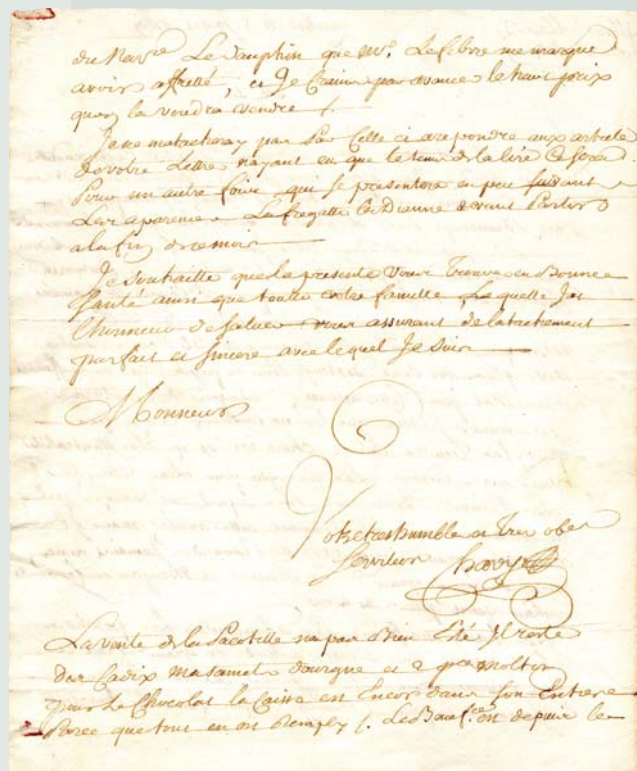 du Nav.re Le Dauphin que Mr. Lefebvre me marque
avoir affretté, et Je Crains par avance le haut prix
quon la voudra vendre
Je ne matacheray pas Par Celle ci a repondre aux article
de votre Lettre nayant eu que le tems de la lire
Pour un autre foix qui se presentera en peu suivant
Les aparence La fregatte la Dianne devant Partir
a la fin de ce mois
Je Souhaitte que la presente Vous Trouve en Bonne
Santé ainsi que toutte votre famille Laquelle Jai
Lhonneur de Saluer vous assurant de latachement
parfait et Sincere avec lequel Je Suis
Monsieur
Votre tres humble et Tres obe
Serviteur
La vente de la Pacotille na pas Bien Esté Il reste
des Cadix et 2
pour Le Chocolat la Caisse est Encore dans Son Entiere
Parce que tout en est Remply depuis le